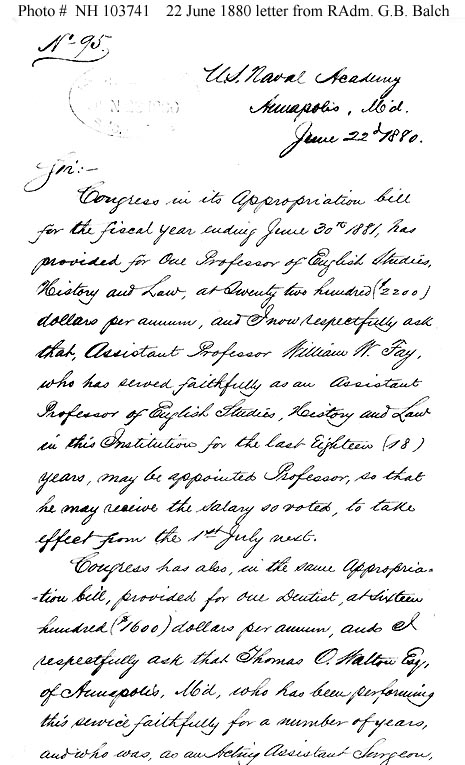 Photo # NH 103741 22 June 1880 letter from RAdm. G.B. Balch
No 95.
U.S. Naval Academy
Annapolis, Md.
June 22d 1880.
Sir:-
Congress in its Appropriation bill
for the fiscal year ending June 30th 1881, has
provided for One Professor of English Studies,
History and Law, at Twenty two hundred ($2200)
dollars per annum, and I now respectfully ask
that, Assistant Professor William W. Fay,
who has served faithfully as an Assistant
Professor of English Studies, History and Law
in this Institution for the last Eighteen (18)
years, may be appointed Professor, so that
he may receive the salary so voted, to take
effect from the 1st July next.
Congress has also, in the same Appropria-
-tion bill, provided for one Dentist, at Sixteen
hundred ($1600) dollars per annum, and I
respectfully ask that Thomas O. Walton Esq,
of Annapolis, Md, who has been performing
this service faithfully for a number of years,
and who was, as an Acting Assistant Surgeon,